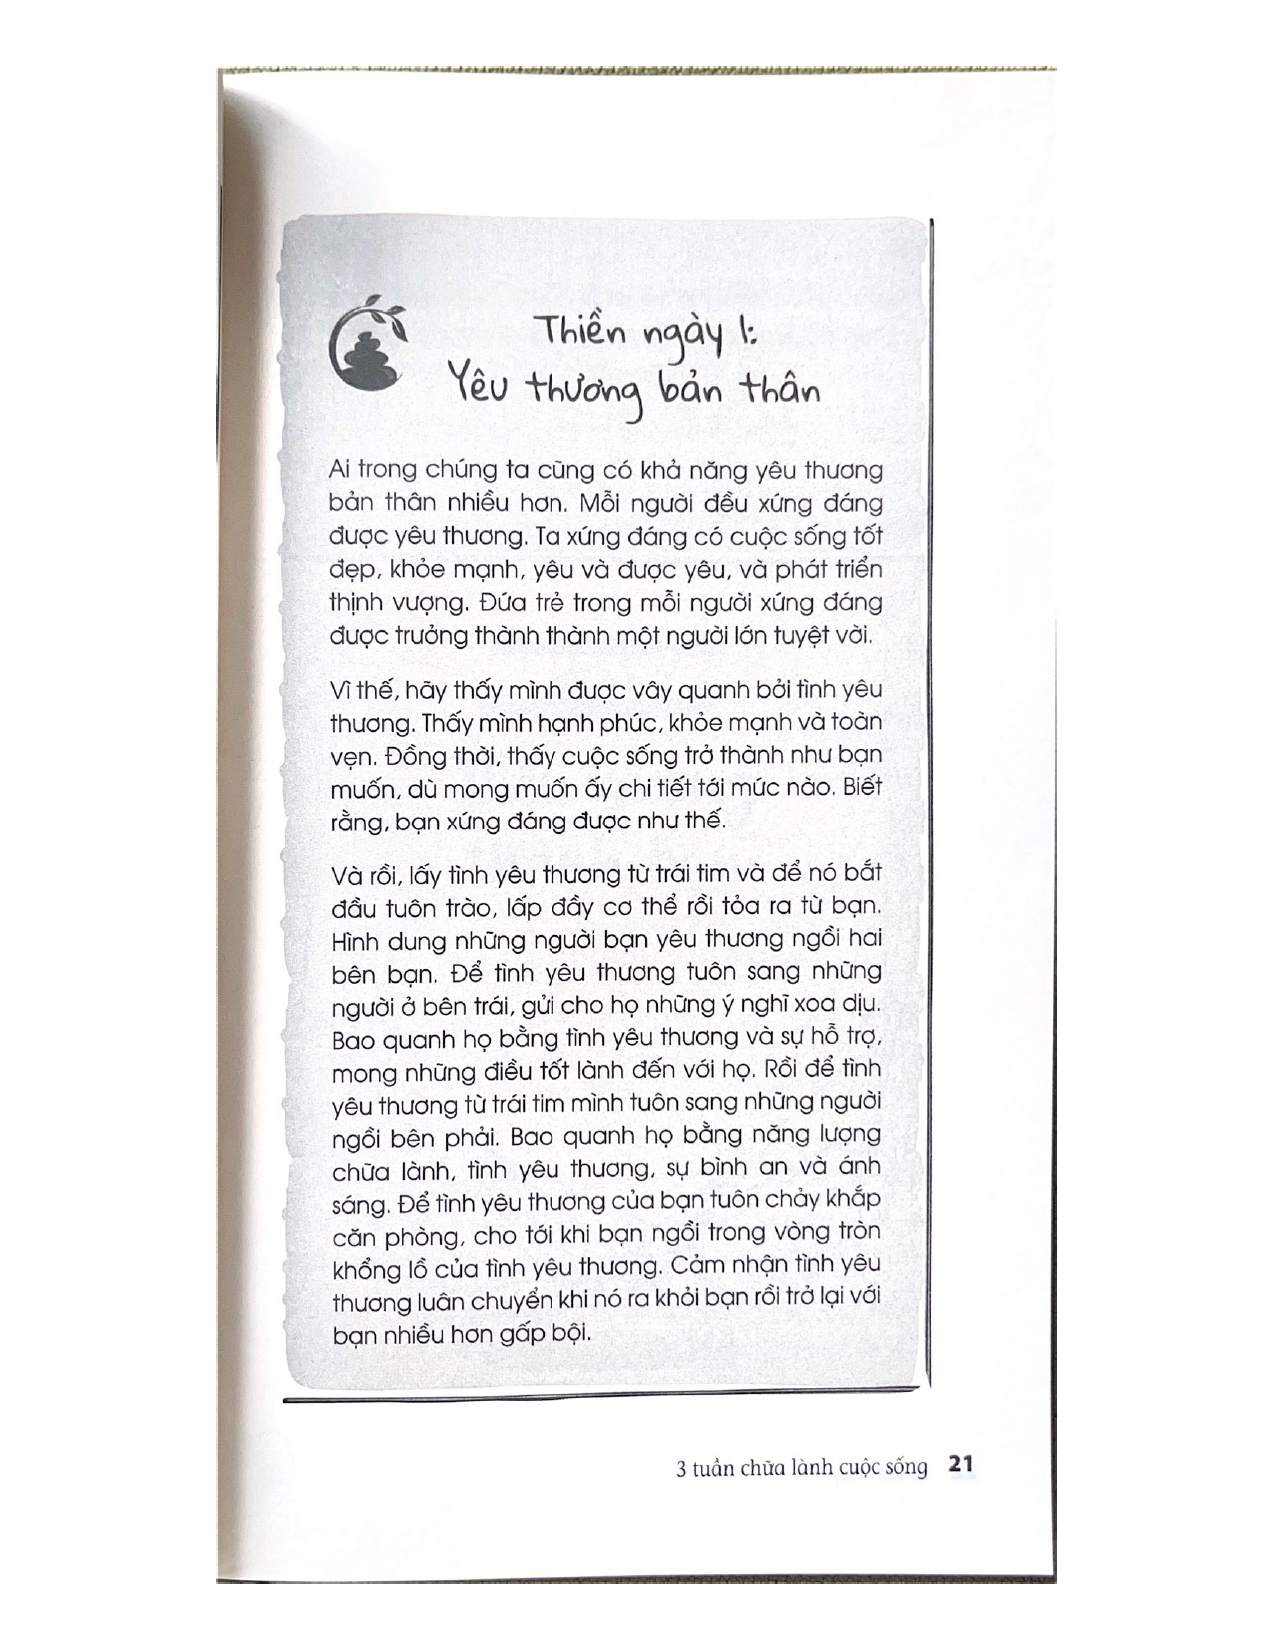 Thiền ngày 1:
Yêu thương bản thân
Ai trong chúng ta cũng có khả năng yêu thương
bản thân nhiều hơn. Mỗi người đều xứng đáng
được yêu thương. Ta xứng đáng có cuộc sống tốt
đẹp, khỏe mạnh, yêu và được yêu, và phát triển
thịnh vượng. Đứa trẻ trong mỗi người xứng đáng
được trưởng thành thành một người lớn tuyệt vời.
Vì thế, hãy thấy mình được vây quanh bởi tình yêu
thương. Thấy mình hạnh phúc, khỏe mạnh và toàn
vẹn. Đồng thời, thấy cuộc sống trở thành như bạn
muốn, dù mong muốn ấy chi tiết tới mức nào. Biết
rằng, bạn xứng đáng được như thế.
Và rồi, lấy tình yêu thương từ trái tim và để nó bắt
đầu tuôn trào, lấp đầy cơ thể rồi tỏa ra từ bạn.
Hình dung những người bạn yêu thương ngồi hai
bên bạn. Để tình yêu thương tuôn sang những
người ở bên trái, gửi cho họ những ý nghĩ xoa dịu.
Bao quanh họ bằng tình yêu thương và sự hỗ trợ,
mong những điều tốt lành đến với họ. Rồi để tình
yêu thương từ trái tim mình tuôn sang những người
ngồi bên phải. Bao quanh họ bằng năng lượng
chữa lành, tình yêu thương, sự bình an và ánh
sáng. Để tình yêu thương của bạn tuôn chảy khắp
căn phòng, cho tới khi bạn ngồi trong vòng tròn
khổng lồ của tình yêu thương. Cảm nhận tình yêu
thương luân chuyển khi nó ra khỏi bạn rồi trở lại với
bạn nhiều hơn gấp bội.
3 tuần chữa lành cuộc sống 21